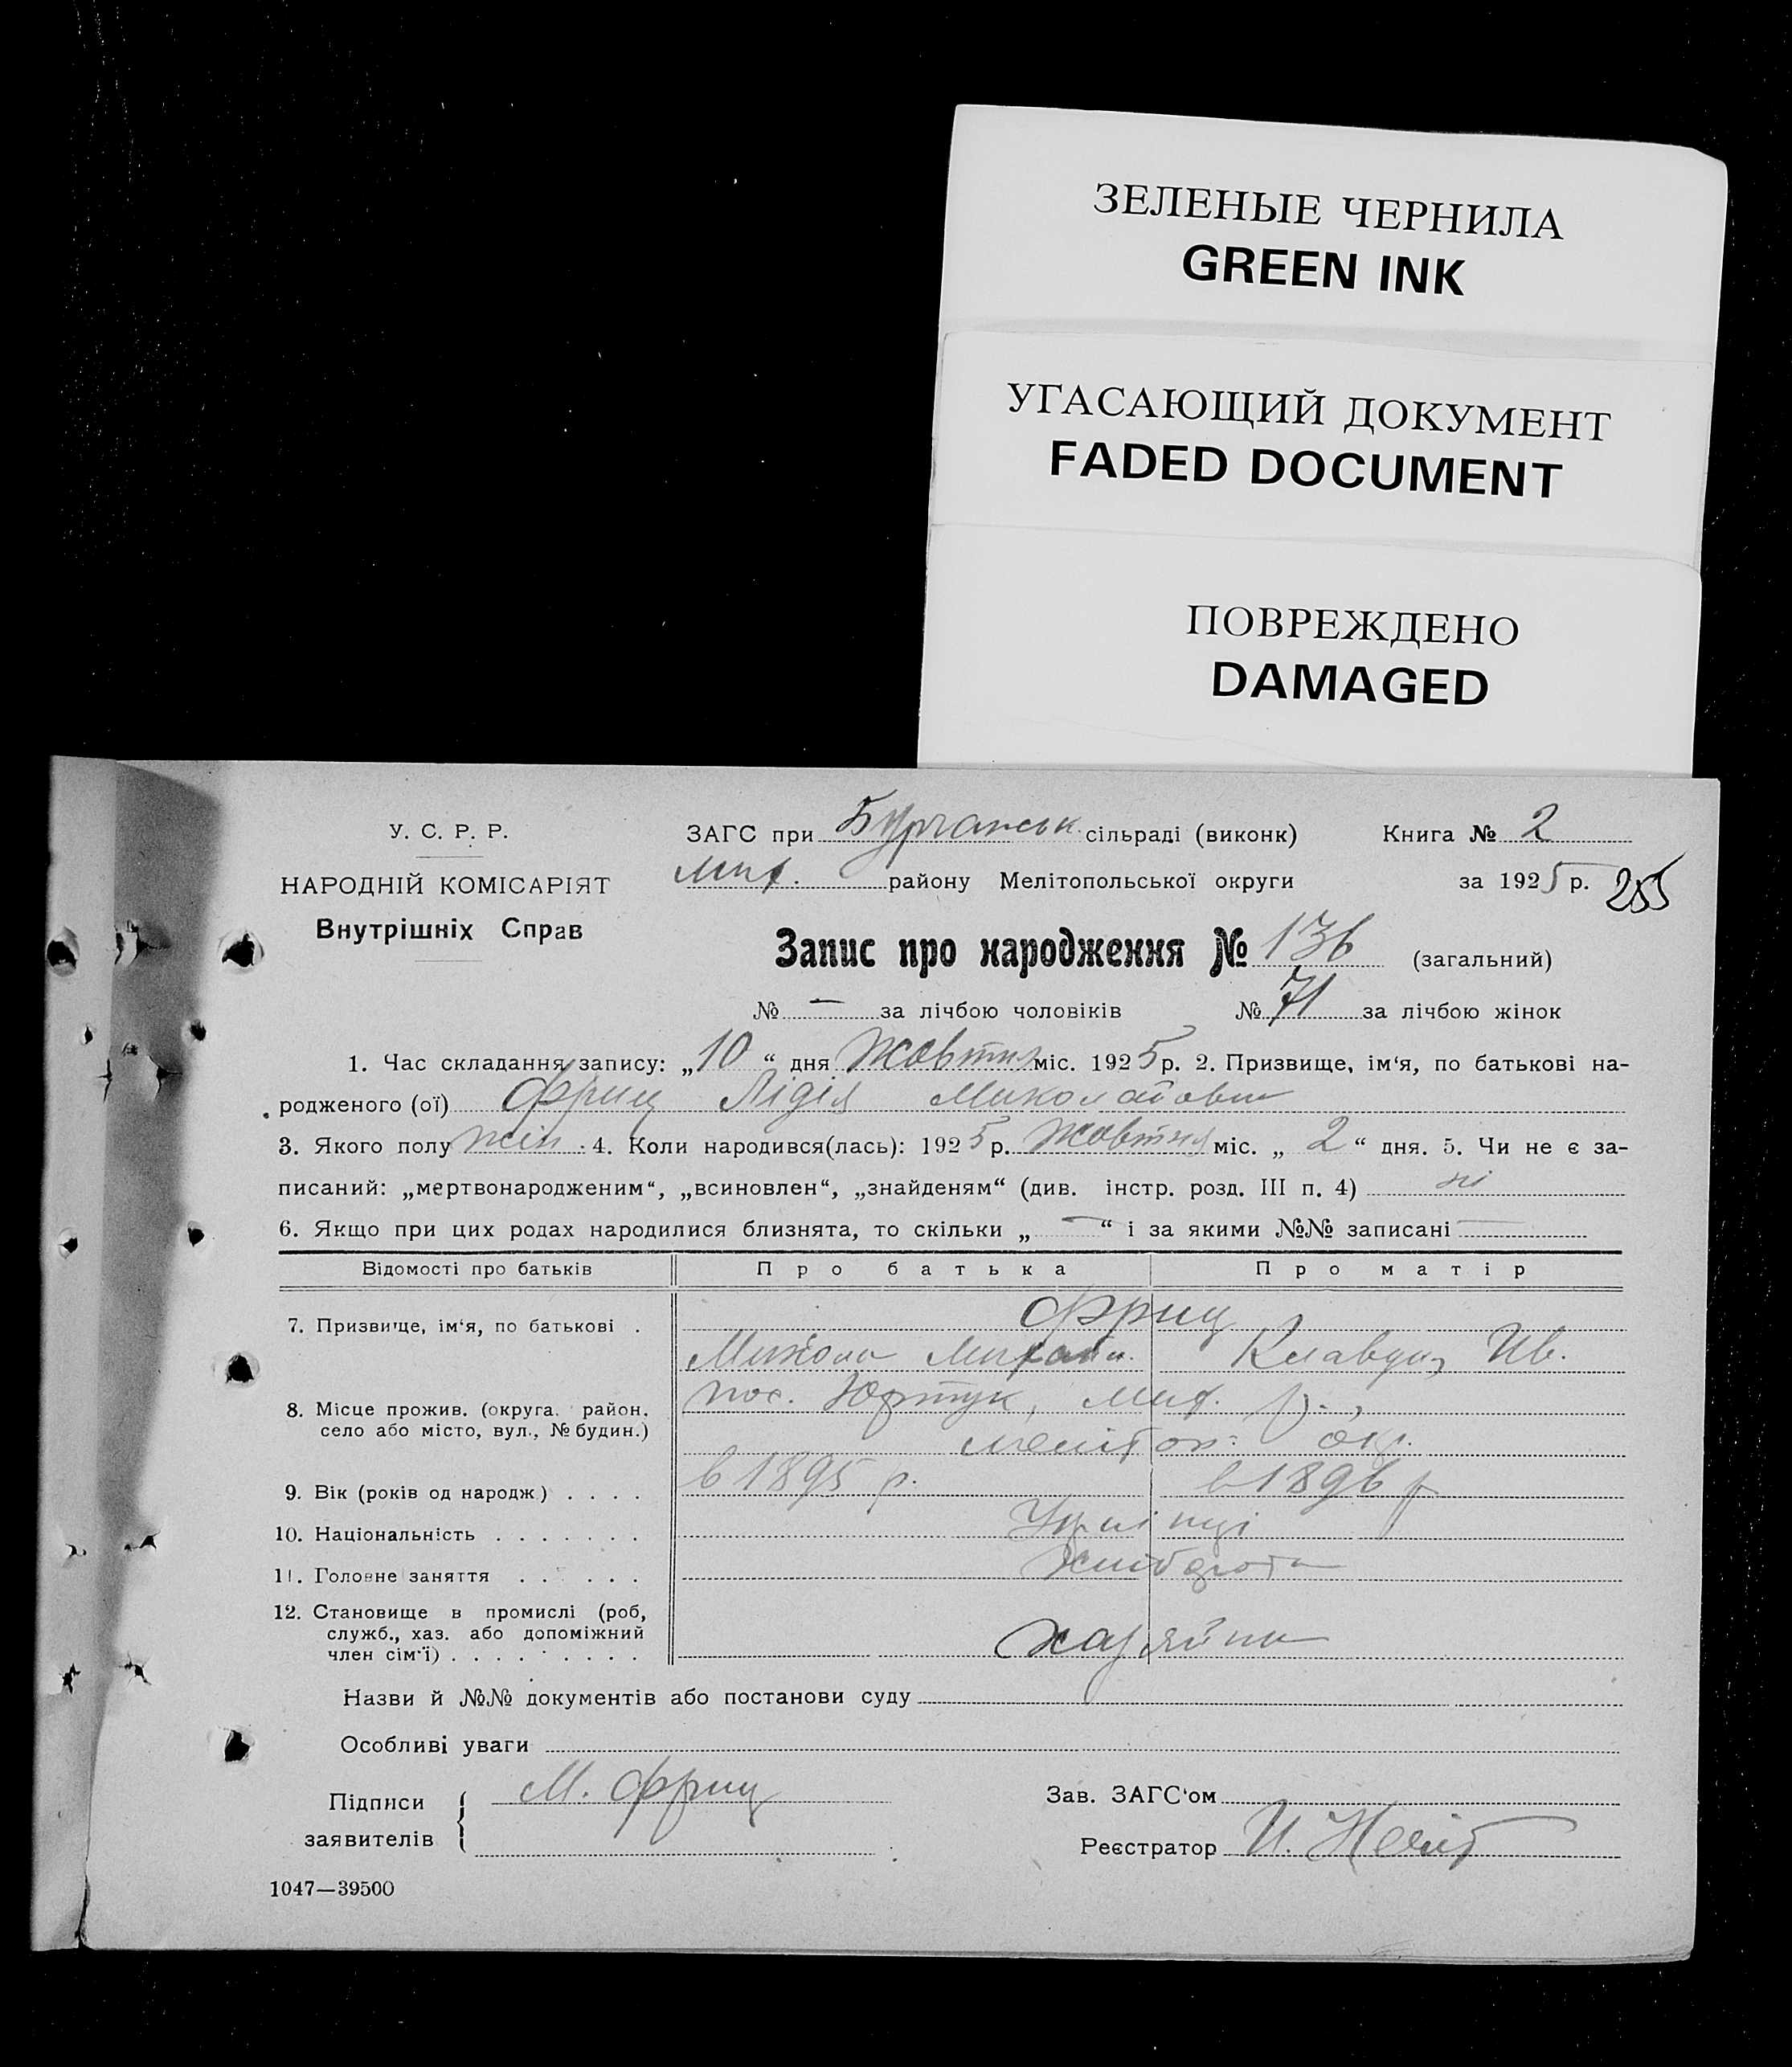 ЗЕЛЕНЫЕ ЧЕРНИЛА
GREEN INK
УГАСАЮЩИЙ ДОКУМЕНТ
FADED DOCUMENT
ПОВРЕЖДЕНО
DAMAGED
У. С. Р. Р.
НАРОДНІЙ КОМІСАРІЯТ
Внутрішніх Справ
ЗАГС при сільраді (виконк) Книга № 2
Мих. району Мелітопольської округи за 1925 р. 255
Запис про народження № 136 (загальний)
№ — за лічбою чоловіків № 71 за лічбою жінок
1. Час складання запису: „10“ дня Жовтня міс. 1925 р. 2. Призвище, ім'я, по батькові на-
родженого (ої) Фриц Лідія Миколаївн
3. Якого полу жін. 4. Коли народився(лась): 1925 р. Жовтня міс. „2“ дня. 5. Чи не є за-
писаний: „мертвонародженим“, „всиновлен“, „знайденям“ (див. інстр. розд. III п. 4) ні
6. Якщо при цих родах народилися близнята, то скільки „—“ і за якими №№ записані —
Відомості про батьків Про батька Про матір
7. Призвище, ім'я, по батькові . Фриц
Микола Михайл. Клавдия Ив.
8. Місце прожив. (округа. район, село або місто, вул., № будин.) пос. Юртук, Мих. р.,
Меліт ок.
9. Вік (років од народж) . . . . в 1895 р. в 1896 р
10. Національність . . . . . . . Українці
11. Головне заняття . . . . . . хлібороби
12. Становище в промислі (роб,
служб., хаз. або допоміжний
член сім'ї) . . . . . . . . . хазяїни
Назви й №№ документів або постанови суду
Особливі уваги
Підписи заявителів { М. Фриц
Зав. ЗАГС'ом
Реєстратор И.
1047—39500